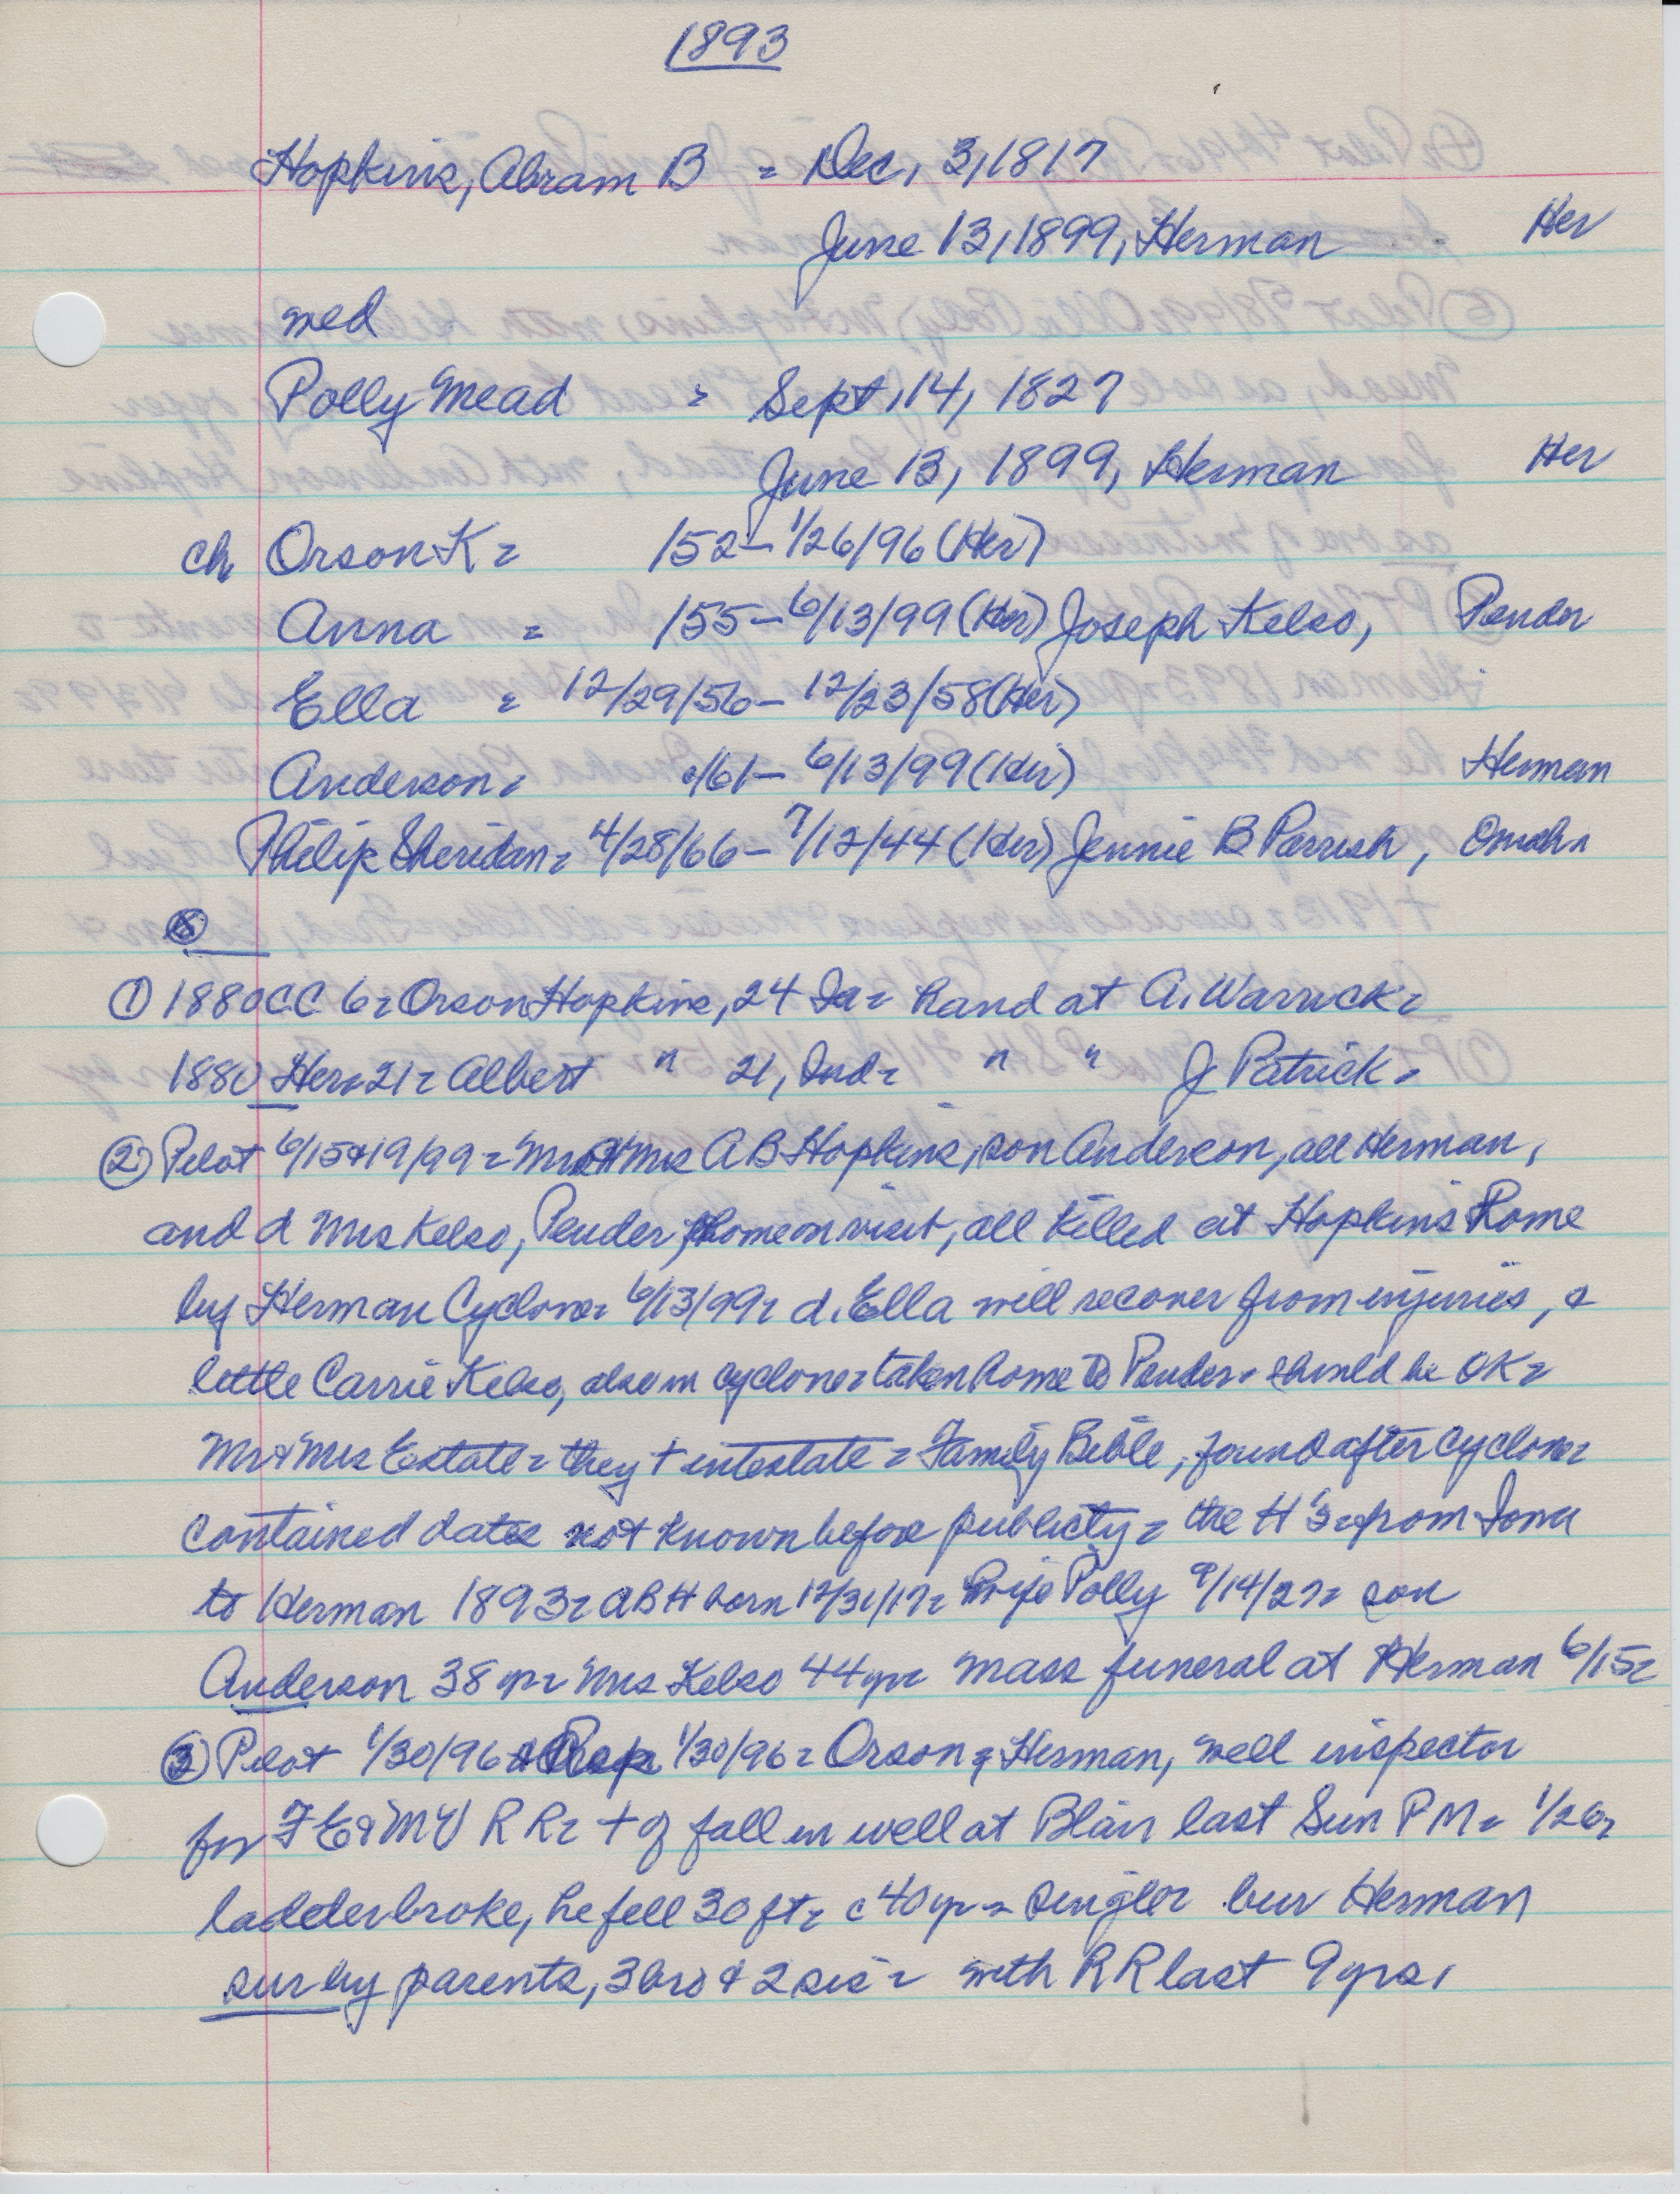 1893
Hopkins, Abram B = Dec, 3, 1817
June 13, 1899, Herman Her
med
Polly Mead = Sept, 14, 1827
June 13, 1899, Herman Her
ch Orson K = /52 - 1/26/96 (Her)
Anna = /55 - 6/13/99 (Her) Joseph Kelso, Pender
Ella = 12/29/56 - 12/23/58 (Her)
Anderson = /61 - 6/13/99 (Her) Herman
Philip Sheridan = 4/28/66 - 7/12/44 (Her) Jennie B Parrish, Omaha
① 1880 CC 6 = Orson Hopkins, 24 Ia = hand at A. Warrick =
1880 Her 21 = Albert " 21, Ind = " " J Patrick =
② Pilot 6/15&19/99 = Mr & Mrs A B Hopkins, son Anderson, all Herman,
and d Mrs Kelso, Pender, home on visit, all killed at Hopkins home
by Herman Cyclone = 6/13/99 = d. Ella will recover from injuries, &
little Carrie Kelso, also in cyclone = taken home to Pender = should be OK =
Mr & Mrs Estate = they + intestate = Family Bible, found after cyclone =
contained dates not known before publicty = the H's = from Iowa
to Herman 1893 = A B H born 12/31/17 = wife Polly 9/14/27 = son
Anderson 38 yr = Mrs Kelso 44 yr = mass funeral at Herman 6/15 =
③ Pilot 1/30/96 & 1/30/96 = Orson of Herman, well inspector
for F E & M V R R = + of fall in well at Blair last Sun PM = 1/26 =
ladder broke, he fell 30 ft = c 40 yr = single = bur Herman
sur by parents, 3 bro & 2 sis = with R R last 9 yrs,